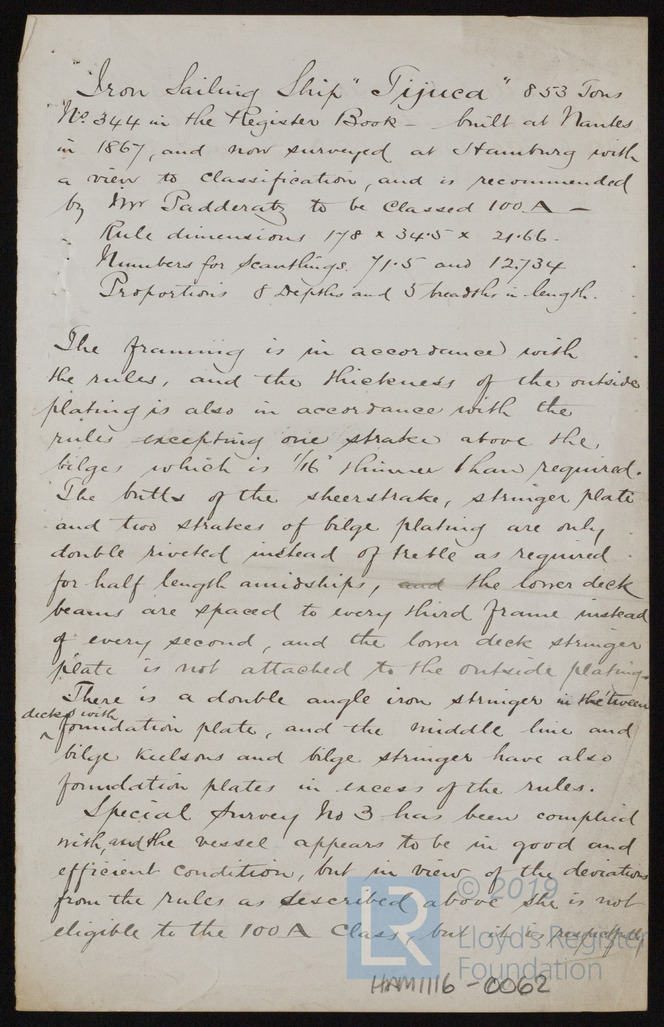 "Iron Sailing Ship "Tijuca" 853 Tons
No. 344 in the Register Book - built at Nantes
in 1867, and now surveyed at Hamburg with
a view to classification, and is recommended
by Mr Padderatz to be Classed 100.A -
Rule dimensions 178 x 34.5 x 21.66.
Numbers for Scantlings. 71.5 and 12.734
Proportions 8 Depths and 5 breadths in length.
The framing is in accordance with
the rules, and the thickness of the outside
plating is also in accordance with the
rules excepting one strake above the
bilges which is 1/16 thinner than required.
The butts of the sheerstrake, stringer plate
and two strakes of bilge plating are only
double riveted instead of treble as required
for half length amidships, and the lower deck
beams are spaced to every third frame instead
of every second, and the lower deck stringer
plate is not attached to the outside plating.
There is a double angle iron stringer in the 'tween
decks with
foundation plate, and the middle line and
bilge keelsons and bilge stringer have also
foundation plates in excess of the rules.
Special Survey No 3 has been complied
with, and the vessel appears to be in good and
efficient condition, but in view of the deviations
from the rules as described above she is not
eligible to the 100A Class, but it is respectfully
LR
© 2019
Lloyd's Register
Foundation
HAM1116-0062